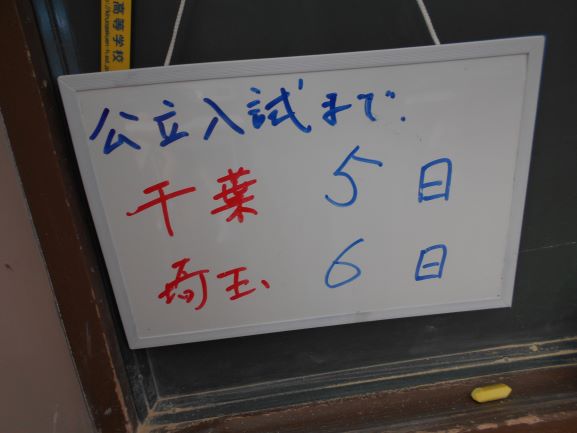 高等学校
公立入試まで.
千葉 5日
埼玉、 6日